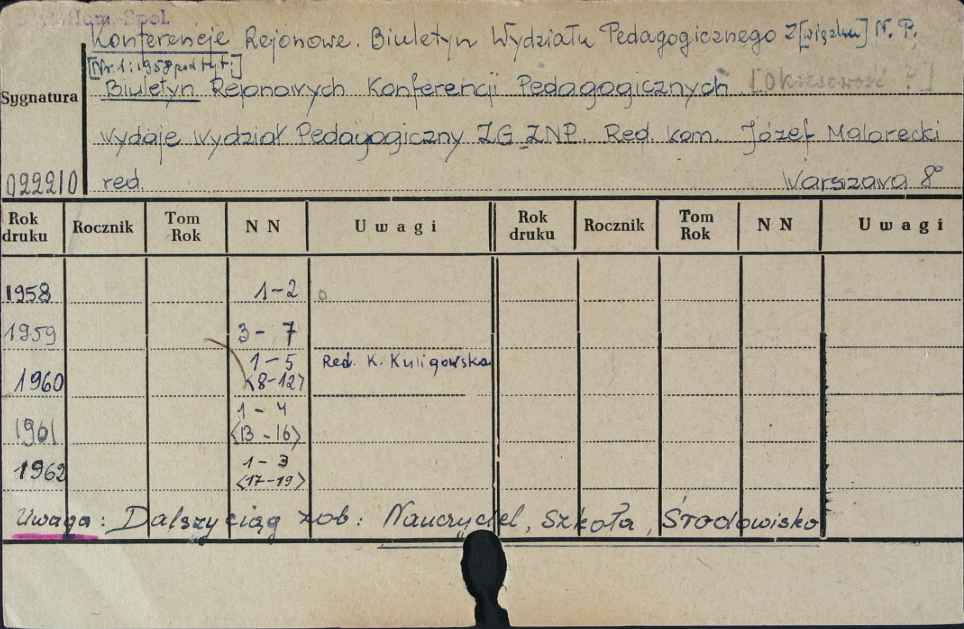 Konferencje Rejonowe. Biuletyn Wydziału Pedagogicznego Z[wiązku] N. P.
[Nr. 1: 1958 pod tyt:]
Biuletyn Rejonowych Konferencji Pedagogicznych [Okresowość ?]
Sygnatura
wydaje Wydział Pedagogiczny ZG ZNP. Red. kom. Józef Malarecki
022210 red. Warszawa 8°
Rok druku Rocznik Tom Rok N N Uwagi Rok druku Rocznik Tom Rok N N Uwagi
1958 1-2
1959 3-7
1-5 Red. K. Kuligowska
1960 <8-12>
1-4
1961 <13-16>
1-3
1962 <17-19>
Uwaga: Dalszy ciąg zob: Nauczyciel, Szkoła, Środowisko